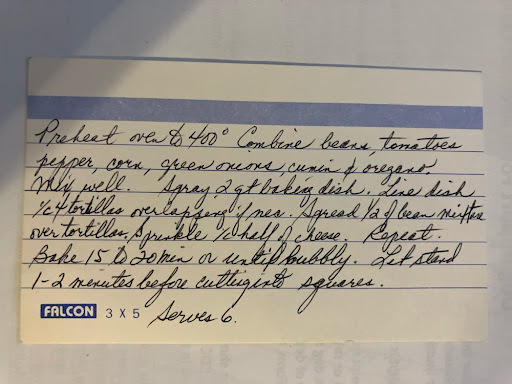 Preheat oven to 400° Combine beans, tomatoes
pepper, corn, green onions, cumin & oregano.
Mix well. Spray 2 qt baking dish. Line dish
w/ 4 tortillas overlapping if nec. Spread 1/2 of bean mixture
over tortillas, sprinkle w/ half of cheese. Repeat.
Bake 15 to 20 min or until bubbly. Let stand
1-2 minutes before cutting into squares.
FALCON 3 X 5 Serves 6.